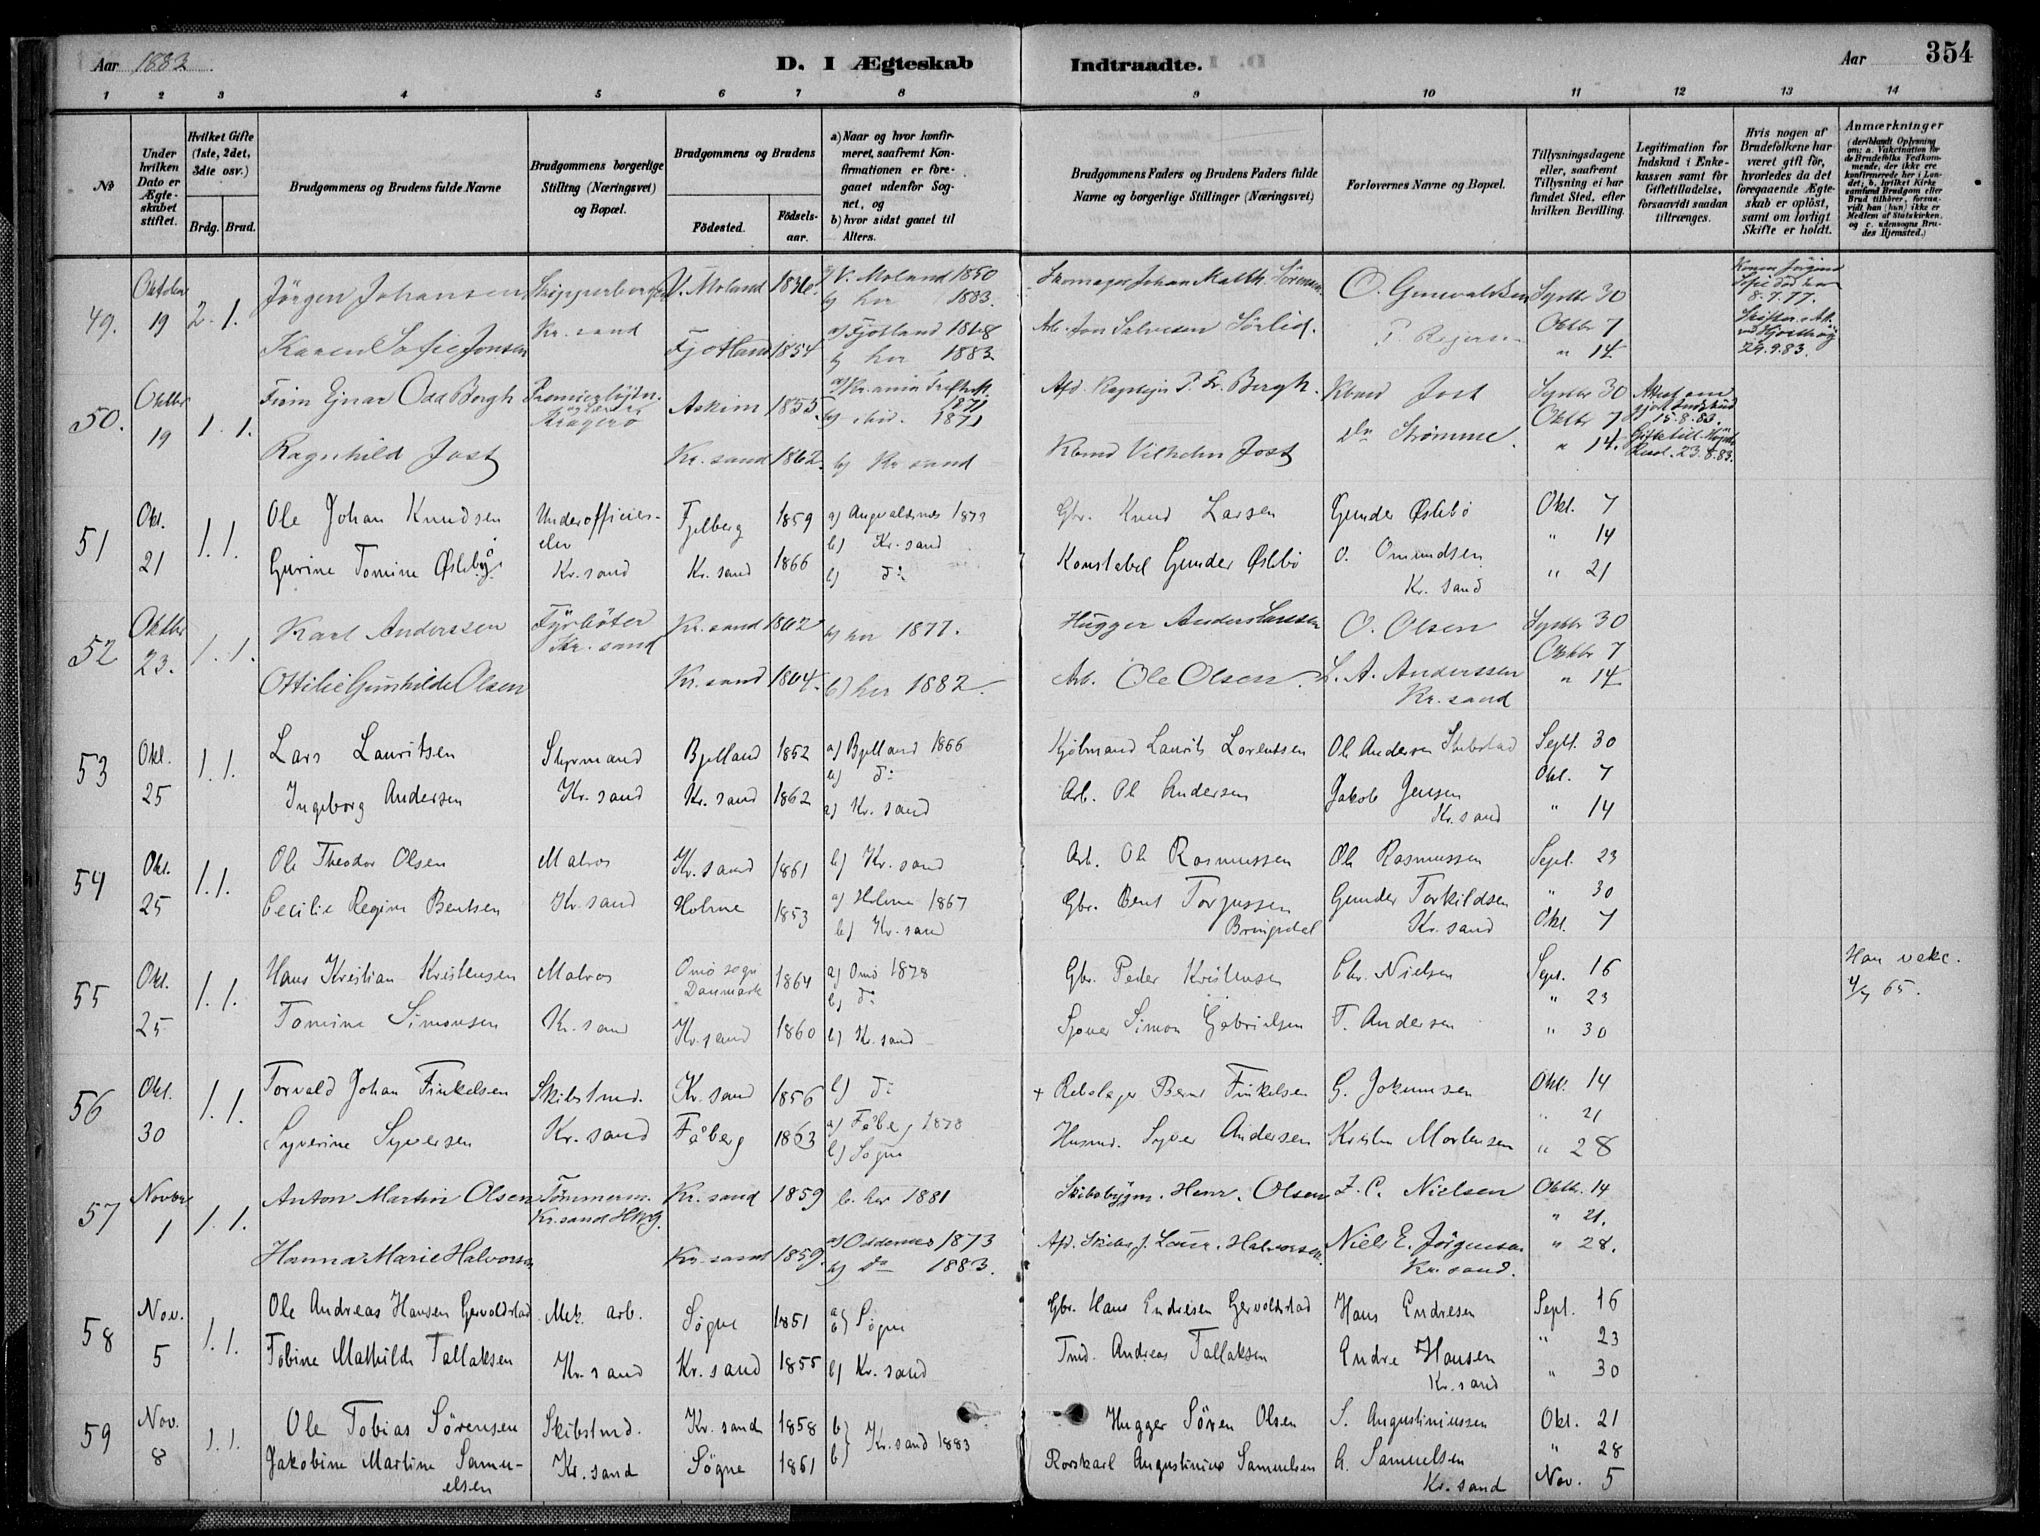 Aar 1883 D. I Ægteskab Indtraadte. Aar 354
1 2 3 4 5 6 7 8 9 10 11 12 13 14
№
Under hvilken Dato er Ægteskabet stiftet.
Hvilket Gifte (1ste, 2det, 3die osv.)
Brdg. Brud.
Brudgommens og Brudens fulde Navne
Brudgommens borgerlige Stilling (Næringsvei) og Bopæl.
Brudgommens og Brudens
Födested. Födselsaar.
a) Naar og hvor konfirmeret, saafremt Konfirmationen er foregaaet udenfor Sognet, og
b) hvor sidst gaaet til Alters.
Brudgommens Faders og Brudens Faders fulde Navne og borgerlige Stillinger (Næringsvei)
Forlovernes Navne og Bopæl.
Tillysningsdagene eller, saafremt Tillysning ei har fundet Sted, efter hvilken Bevilling.
Legitimation for Indskud i Enkekassen samt for Giftetilladelse, forsaavidt saadan tiltrænges.
Hvis nogen af Brudefolkene har været gift för, hvorledes da det foregaaende Ægteskab er oplöst, samt om lovligt Skifte er holdt.
Anmærkninger
49. Oktober 19 2. 1. Jörgen Johansen Kr. sand V. Moland 1836 a) V. Moland 1850 b) her 1883. Skomager Johan Matth. Sörensen O. Gunvaldsen Septbr 30
Karen Sofie Jonsen Fjotland 1854 a) Fjotland 1868 b) her 1883 Arb. Jon Salvesen Sörlid. Oktbr 7 " 14
50. Oktbr 19 1. 1. Finn Ejnar Odd Bergh Kragerö Askim 1855. 1871 b) ibid. 1871 Afd. P. Fr. Bergh. Kbmd Jost Septbr 30 Oktbr 7
Ragnhild Jost Kr. sand 1862. b) Kr. sand Kbmd Vilhelm Jost Strömme. " 14.
51 Okt. 21 1. 1. Ole Johan Knudsen Underofficierelev Fjelberg 1859 a) Augvaldsnes 1873 b) Kr. sand Gbr. Knud Larsen Gunder Øslebö Okt. 7 " 14
Gurine Tomine Øslebö Kr. sand Kr. sand 1866 b) do Konstabel Gunder Øslebö O. Omundsen Kr. sand " 21
52 Oktbr 23. 1. 1. Karl Anderssen Fyrböter Kr. sand Kr. sand 1862 b) her 1877. Hugger Anders Larsen O. Olsen Septbr 30 Oktbr 7
Ottilie Gunhilde Olsen Kr. sand 1864. b) her 1882. Arb. Ole Olsen. L. A. Anderssen Kr. sand " 14
53 Okt. 25 1. 1. Lars Lauritsen Styrmand Bjelland 1852 a) Bjelland 1866 b) do Laurits Lorentsen Ole Andersen Septbr. 30 Okt. 7
Ingeborg Andersen Kr. sand Kr. sand 1862 b) Kr. sand Arb. Ole Andersen Jakob Jensen Kr. sand " 14
54 Okt. 25 1. 1. Ole Theodor Olsen Matros Kr. sand 1861 b) Kr. sand Arb. Ole Rasmussen Ole Rasmussen Sept. 23 " 30
Cecilie Regine Bentsen Kr. sand Holme 1853 a) Holme 1867 b) Kr. sand Gbr. Bent Torjussen Bringsdal Gunder Torkildsen Kr. sand Okt. 7
55 Okt. 25 1. 1. Hans Kristian Kristensen Matros Omö sogn Danmark 1864 a) Omö 1878 b) do Gbr. Peder Kristensen Chr. Nielsen Sept. 16 " 23 Han vakc. 4/7 65.
Tomine Simonsen Kr. sand Kr. sand 1860 b) Kr. sand Simon Gabrielsen T. Andersen " 30
56 Okt. 30 1. 1. Torvald Johan Finkelsen Skibstmd. Kr. sand 1856 b) do + Rebslager Bernt Finkelsen G. Jokumsen Okt. 14 " 21
Syverine Syversen Kr. sand Fåberg 1863 a) Fåberg 1878 b) Sogne Husmd. Syver Andersen Kristen Mortensen " 28
57 Novbr 1 1. 1. Anton Martin Olsen Tömmerm. Kr. sand Kr. sand 1859 b. her 1881 Skibsbygm. Henr. Olsen Z. C. Nielsen Oktb. 14 " 21.
Hanna Marie Halvorsen Kr. sand 1859. a) Oddernes 1873 b) do 1883. Afd. Halvorsen. Niels E. Jörgensen Kr. sand. " 28.
58 Nov. 5 1. 1. Ole Andreas Hansen Gervoldstad Mek. arb. Sögne 1851 a) b) Sögne Gbr. Hans Endresen Gervoldstad Hans Endresen Sept. 16 " 23
Tobine Mathilde Tallaksen Kr. sand Kr. sand 1855 b) Kr. sand Tmd. Andreas Tallaksen Endre Hansen Kr. sand " 30
59 Nov. 8 1. 1. Ole Tobias Sörensen Skibstmd. Kr. sand 1858 b) Kr. sand 1883 Hugger Sören Olsen S. Augustiniussen Okt. 21 " 28
Jakobine Martine Samuelsen Kr. sand Sögne 1861 b) Rorskarl Augustinius Samuelsen A. Samuelsen Kr. sand Nov. 5